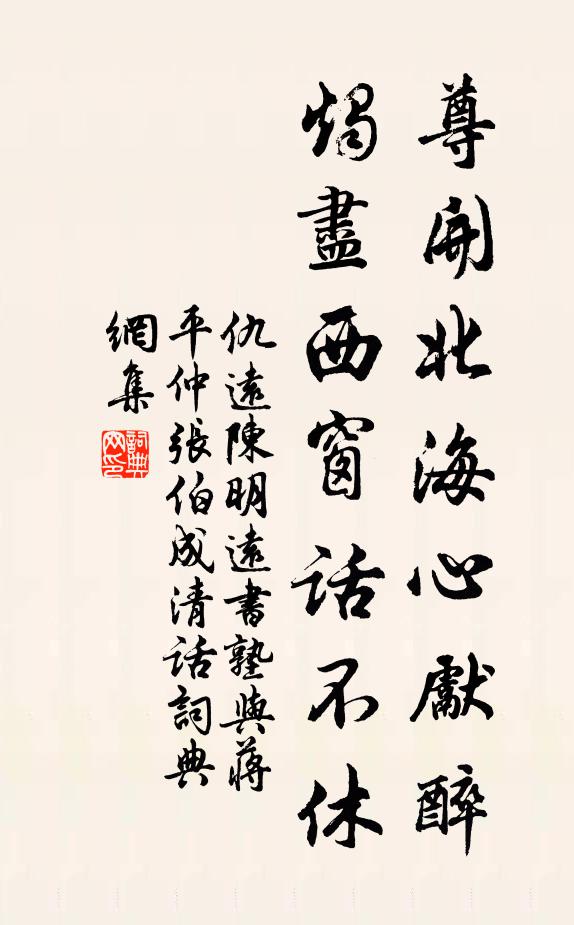 尊開北海心獻醉
燭盡西窗話不休
仇遠陳明遠書塾與蔣
平仲張伯成清話詞典
網集
詞典
网印